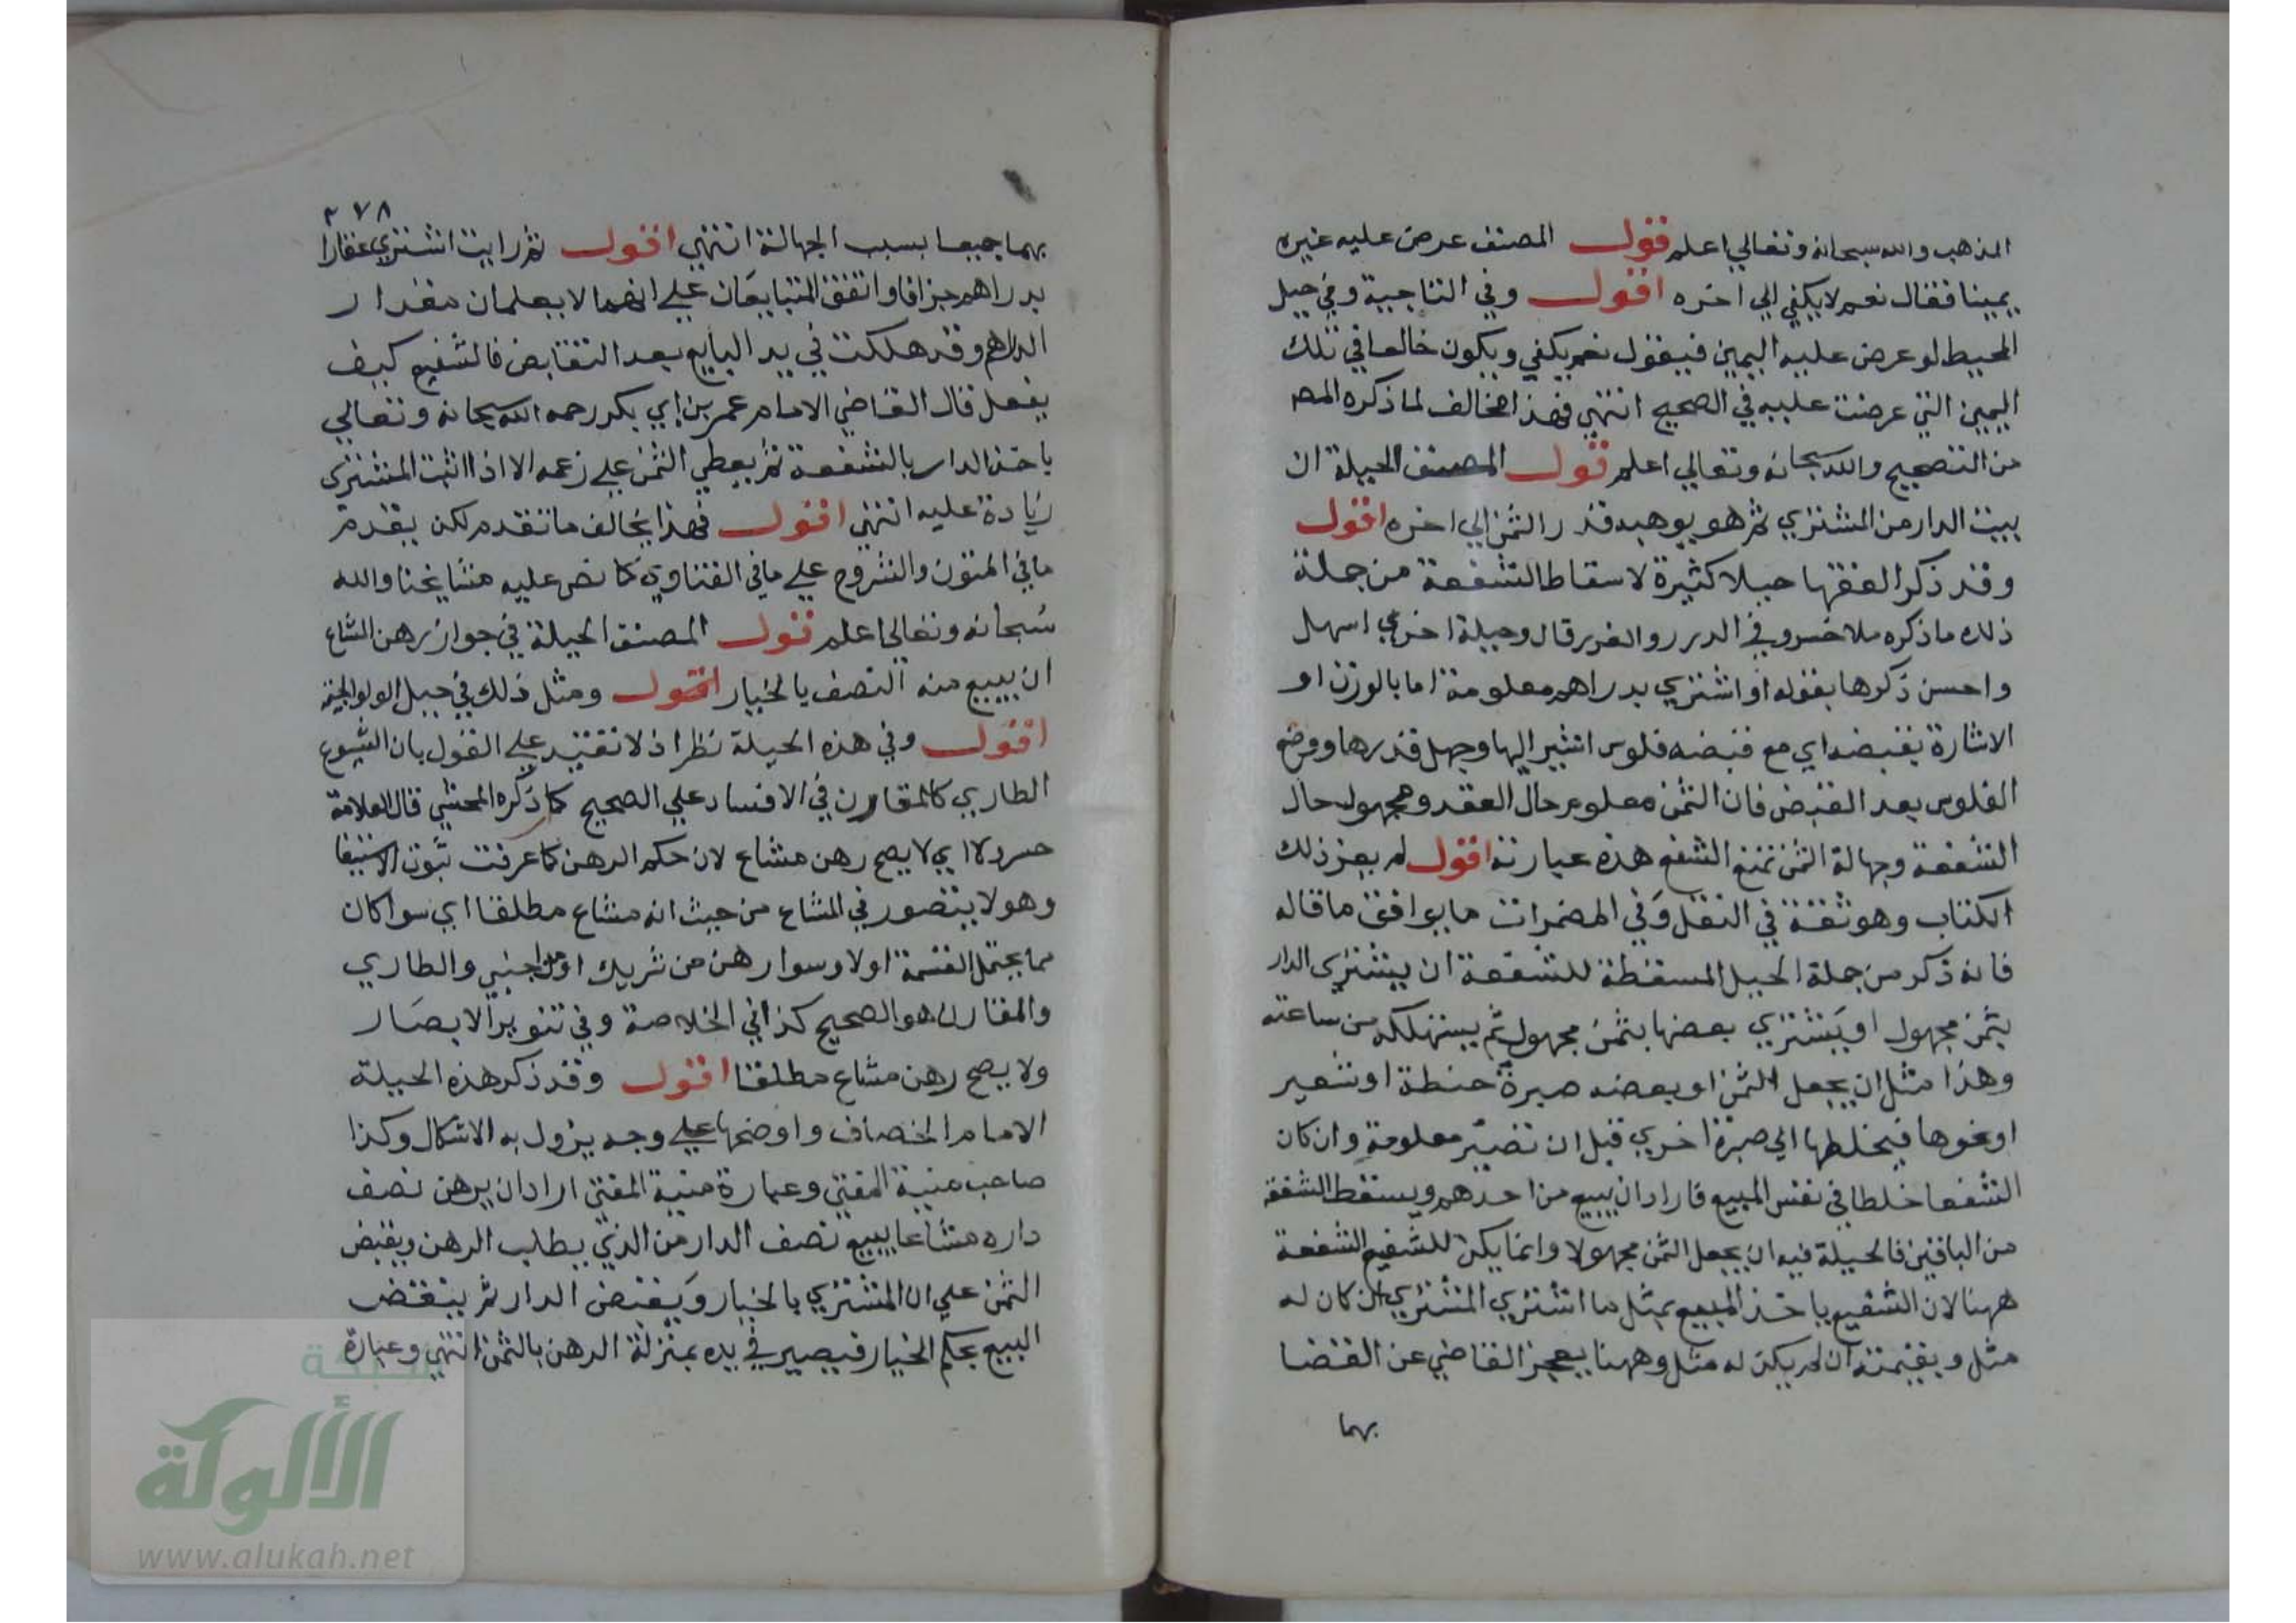 المذهب والله سبحانه وتعالي اعلم قول المصنف عرض عليه غيره
يمينا فقال نعم لا يكفي الي اخره اقول وفي التاجية وفي حيل
المحيط لو عرض عليه اليمين فيقول نعم يكفي ويكون حالفا في تلك
اليمين التي عرضت عليه في الصحيح انتهي فهذا مخالف لما ذكره المص
من التصحيح والله سبحانه وتعالي اعلم قول المصنف الحيلة ان
يبيت الدار من المشتري ثم هو يوهبه قدر الثمن الي اخره اقول
وقد ذكر الفقها حيلا كثيرة لاسقاط الشفعة من جملة
ذلك ما ذكره ملا خسرو في الدرر والغرر قال وحيلة اخري اسهل
واحسن ذكرها بقوله او اشتري بدراهم معلومة اما بالوزن او
الاشارة بقبضه اي مع قبضه فلوس اشير اليها وجهل قدرها وضيع
الفلوس بعد القبض فان الثمن معلوم حال العقد ومجهول حال
الشفعة وجهالة الثمن تمنع الشفع هذه عبارته اقول لم يعز ذلك
الكتاب وهو ثقة في النقل وفي المضمرات ما يوافق ما قاله
فانه ذكر من جملة الحيل المسقطة للشفعة ان يشتري الدار
بثمن مجهول او يشتري بعضها بثمن مجهول ثم يستهلكه من ساعته
وهذا مثل ان يجعل الثمن او بعضه صبرة حنطة او شعير
او نحوها فيخلطها الي صبرة اخري قبل ان تصير معلومة وان كان
الشفعا خلطا في نفس المبيع فاراد ان يبيع من احدهم ويسقط الشفعة
من الباقين فالحيلة فيه ان يجعل الثمن مجهولا وانما يكن للشفيع الشفعة
ههنا لان الشفيع ياخذ المبيع بمثل ما اشتري المشتري ان كان له
مثل وبقيمته ان لم يكن له مثل وههنا يعجز القاضي عن القضا
بهما
٢٧٨
بهما جميعا بسبب الجهالة انتهي اقول ثم رايت اشتري عقارا
بدراهم جزافا واتفق المتبايعان علي انهما لا يعلمان مقدار
الدراهم وقد هلكت في يد البايع بعد التقابض فالشفيع كيف
يفعل قال القاضي الامام عمر بن ابي بكر رحمه الله سبحانه وتعالي
ياخذ الدار بالشفعة ثم يعطي الثمن علي زعمه الا اذا اثبت المشتري
زيادة عليه انتهي اقول فهذا يخالف ما تقدم لكن يقدم
ما في المتون والشروح علي ما في الفتاوي كما نص عليه مشايخنا والله
سبحانه وتعالي اعلم قول المصنف الحيلة في جواز رهن المشاع
ان يبيع منه النصف بالخيار اقول ومثل ذلك في حيل الولوالجية
اقول وفي هذه الحيلة نظر اذ لا تقتيد علي القول بان الشيوع
الطاري كالمقارن في الافساد علي الصحيح كما ذكره المحشي قال العلامة
خسرو لا اي لا يصح رهن مشاع لان حكم الرهن كما عرفت ثبوت الاستيفا
وهو لا يتصور في المشاع من حيث انه مشاع مطلقا اي سوا كان
مما يحتمل القسمة اولا وسوا رهن من شريك او من اجنبي والطاري
والمقارن هو الصحيح كذا في الخلاصة وفي تنوير الابصار
ولا يصح رهن مشاع مطلقا اقول وقد ذكر هذه الحيلة
الامام الخصاف واوضحها علي وجه يزول به الاشكال وكذا
صاحب منية المفتي وعبارة منية المفتي اراد ان يرهن نصف
داره مشاعا يبيع نصف الدار من الذي يطلب الرهن ويقبض
الثمن علي ان المشتري بالخيار ويقبض الدار ثم ينقض
البيع بحكم الخيار فيصير في يده بمنزلة الرهن بالثمن انتهي وعبارة
شبكة
الألوكة
www.alukah.net